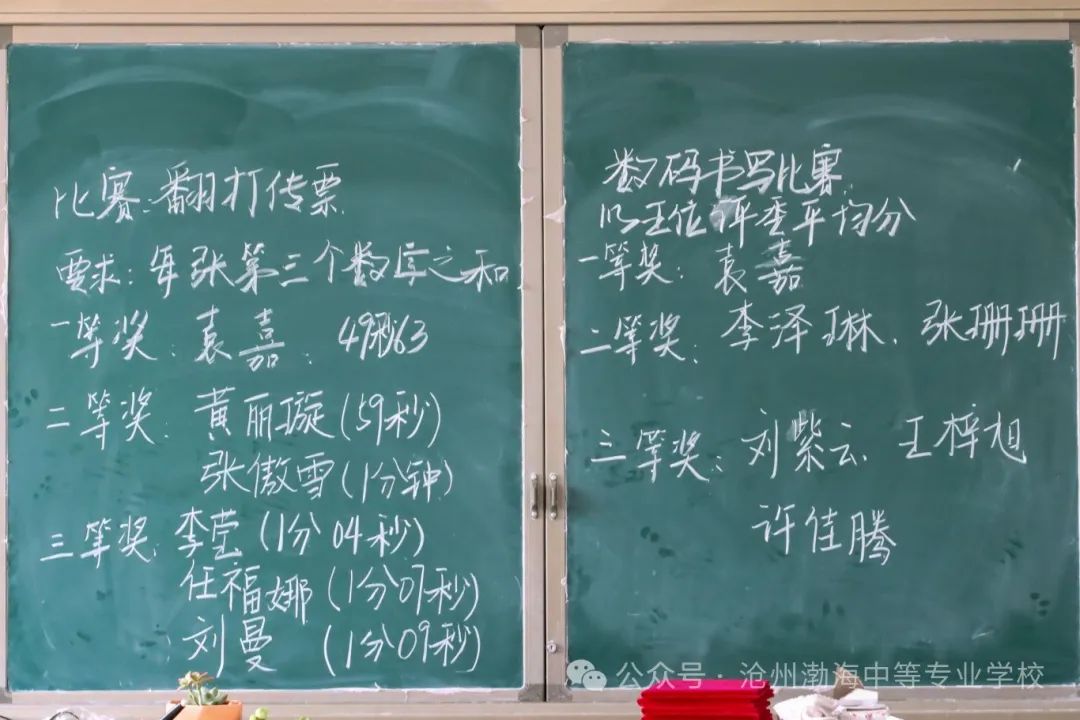 比赛:翻打传票
要求:每张第三个数字之和
一等奖:袁嘉:49秒63
二等奖:黄丽璇(59秒)
张傲雪(1分钟)
三等奖:李莹(1分04秒)
任福娜(1分07秒)
刘曼 (1分09秒)
数码书写比赛
以五位评委平均分
一等奖:袁嘉
二等奖:李泽琳、张珊珊
三等奖:刘紫云、王梓旭
许佳腾
公众号·沧州渤海中等专业学校